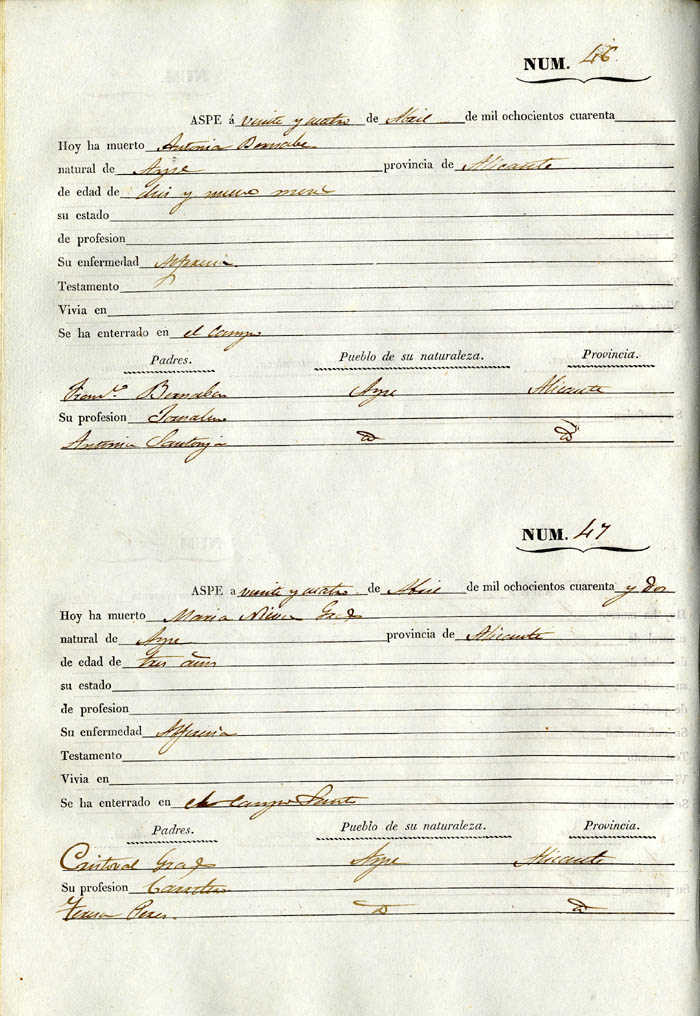 NUM. 46
ASPE á veinte y cuatro de Abril de mil ochocientos cuarenta
Hoy ha muerto Antonia Bernabe
natural de Aspe provincia de Alicante
de edad de diez y nueve meses
su estado
de profesion
Su enfermedad
Testamento
Vivia en
Se ha enterrado en el Campo
Padres. Pueblo de su naturaleza. Provincia.
Franco. Bernabeu Aspe Alicante
Su profesion Jornalero
Antonia Santonja
NUM. 47
ASPE a veinte y cuatro de Abril de mil ochocientos cuarenta y dos
Hoy ha muerto Maria
natural de Aspe provincia de Alicante
de edad de tres años
su estado
de profesion
Su enfermedad
Testamento
Vivia en
Se ha enterrado en el Campo Santo
Padres. Pueblo de su naturaleza. Provincia.
Cristoval Aspe Alicante
Su profesion
Teresa Perez